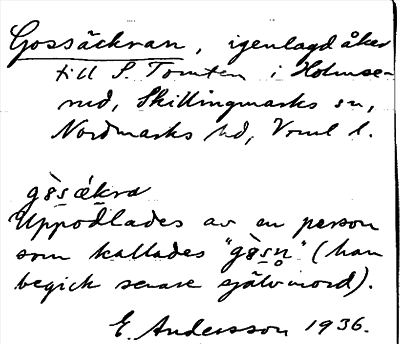 Gossäckran, igenlagd åker
till S. Tomten i Holmse-
rud, Skillingmarks sn,
Nordmarks hd, Vrml l.
gò̀s ákra
Uppodlades av en person
som kallades "gòsn̥" (han
begick senare självmord).
E. Andersson 1936.